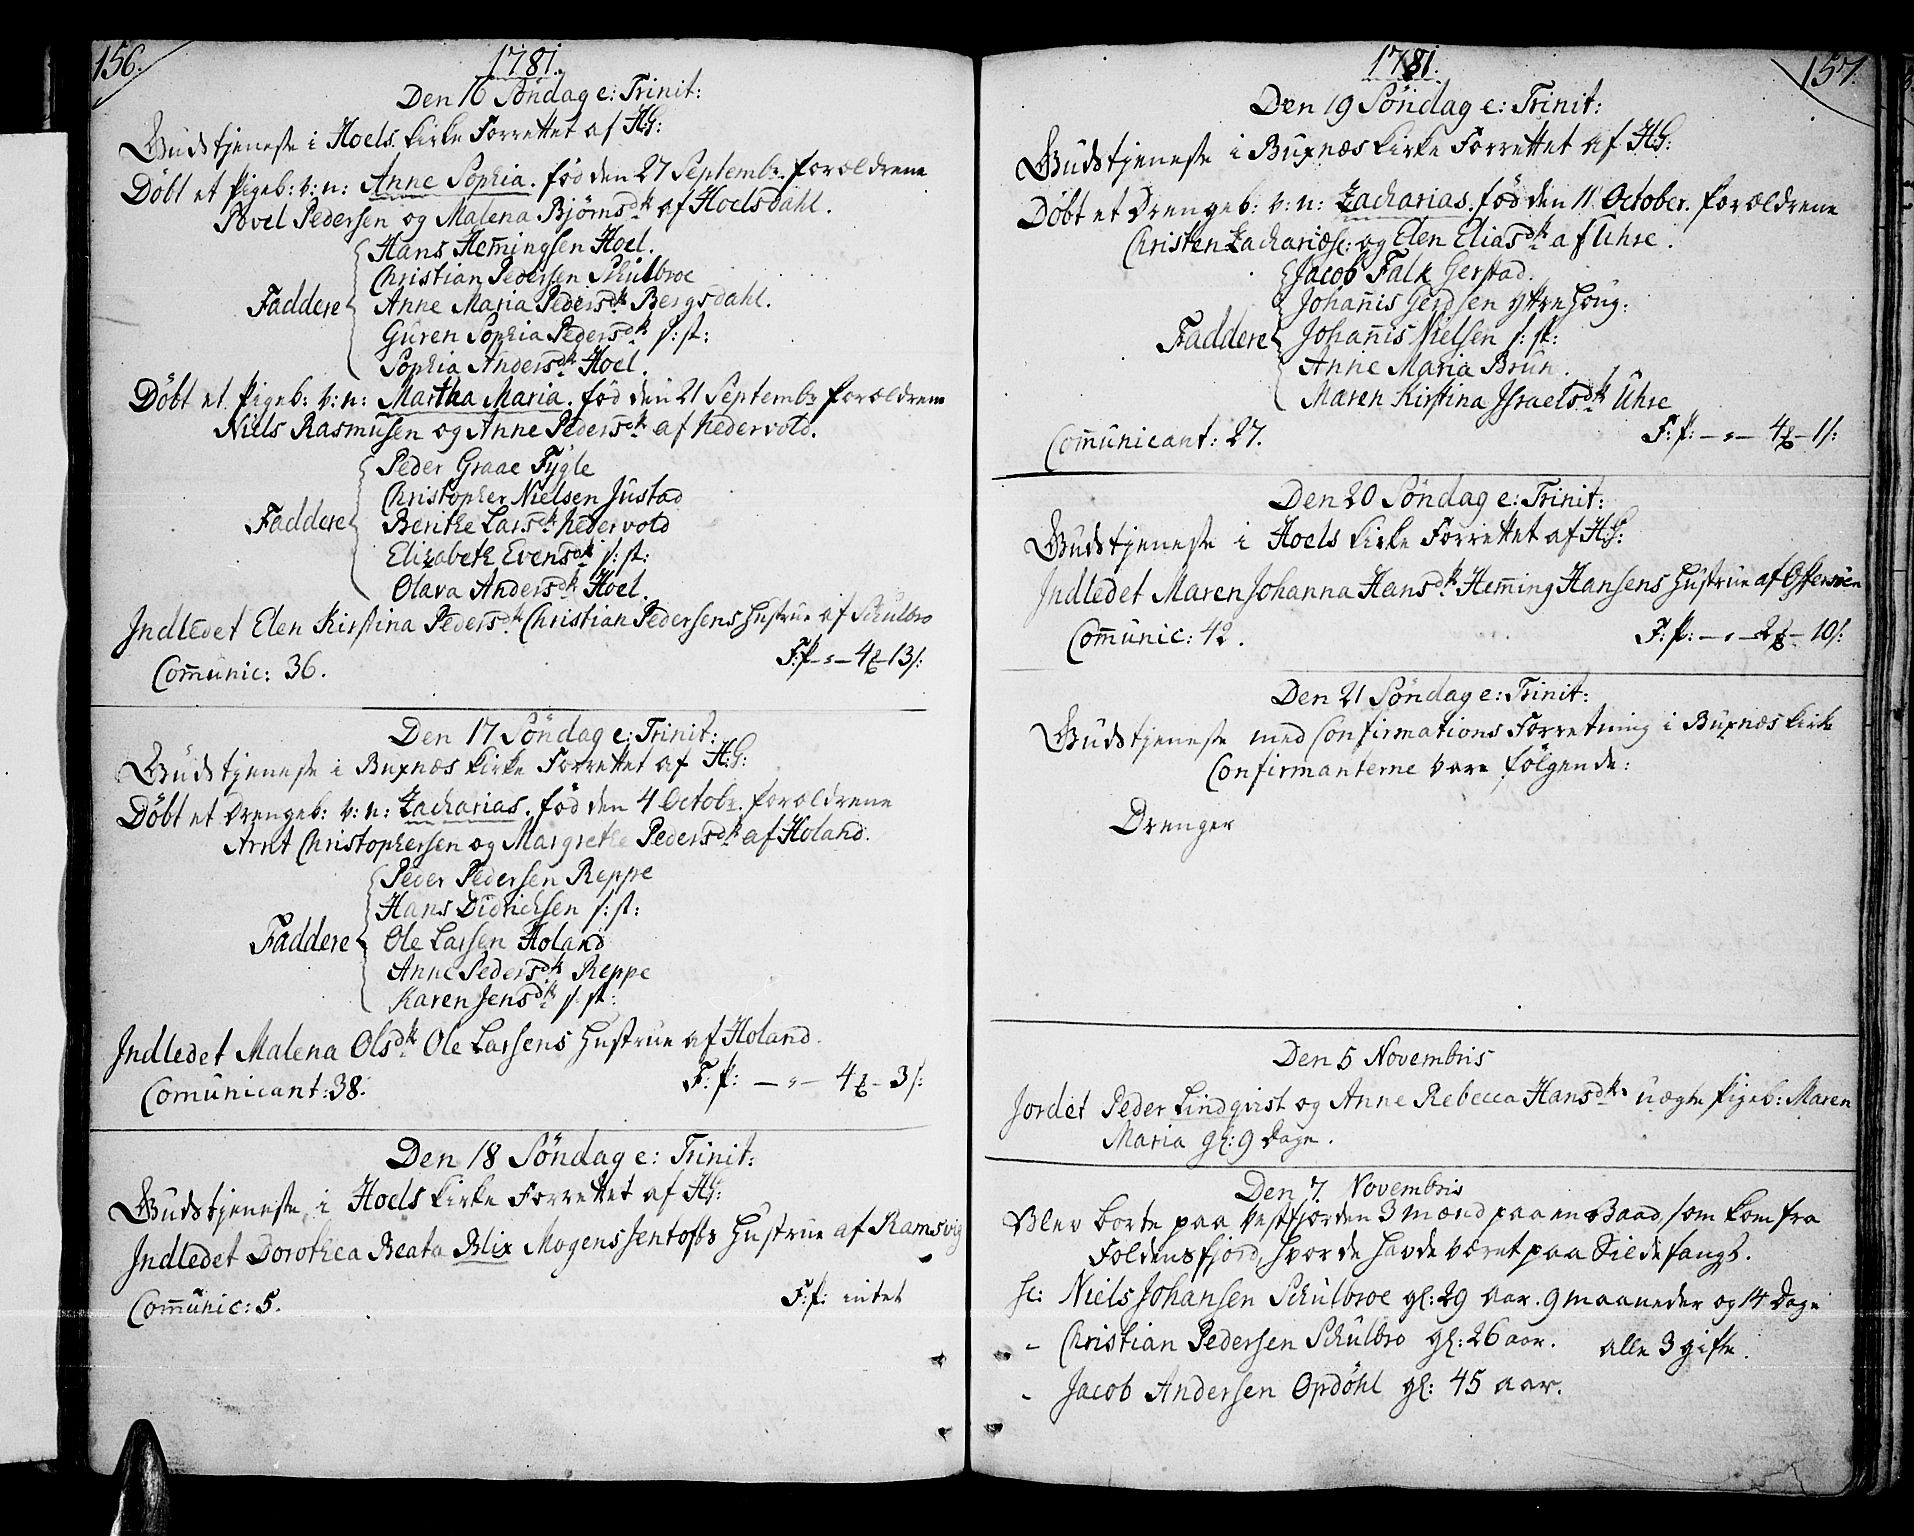 156.
1781.
Den 16 Söndag e: Trinit:
Gudstjeneste i Hoels kirke Forrettet af H:G:
Döbt et Pigeb: v: n: Anne Sophia. föd den 27 Septembr. forældrene
Povel Pedersen og Malena Björnsdtt af Hoelsdahl.
Hans Hem̃ingsen Hoel.
Christian Pedersen Schulbroe
Faddere Anne Maria Pedersdtt Bergsdahl.
Guren Sophia Pedersdtt s: st:
Sophia Andersdtt Hoel.
Döbt et Pigeb: v: n: Martha Maria. föd den 21 Septembr forældrene
Niels Rasmusen og Anne Pedersdtt af Nedervold.
Peder Graae Fygle
Christopher Nielsen Justad
Faddere Berithe Larsdtt Nedervold
Elizabeth Evensdtt s: st:
Olava Andersdtt Hoel.
Indledet Elen Kirstina Pedersdtt Christian Pedersens Hustrue af Schulbro
Com̃unic: 36.
F: p: – " – 4 – 13 s:
Den 17 Söndag e: Trinit:
Gudstjeneste i Buxnæs kirke Forrettet af H:G:
Döbt et Drengeb: v: n: Zacharias. föd den 4 Octobr. forældrene
Arnt Christophersen og Margrethe Pedersdtt af Holand.
Peder Pedersen Reppe
Hans Didrichsen s: st:
Faddere Ole Larsen Holand
Anne Pedersdtt Reppe
Karen Jensdtt s: st:
Indledet Malena Olsdtt Ole Larsens Hustrue af Holand.
Com̃unicant: 38.
F: p: – " – 4 – 3 s:
Den 18 Söndag e: Trinit:
Gudstjeneste i Hoels kirke Forrettet af H:G:
Indledet Dorothea Beata Blix Mogens Jentofts Hustrue af Ramsvig
Com̃unic: 5.
F: p: intet
1781.
157.
Den 19 Söndag e: Trinit:
Gudstjeneste i Buxnæs kirke Forrettet af H:G:
Döbt et Drengeb: v: n: Zacharias. föd den 11 October. forældrene
Christen Zachariæs: og Elen Eliasdtt af Uhre.
Jacob Falk Gerstad.
Johañis Gerdsen Yttrehoug:
Faddere Johañis Nielsen s: st:
Anne Maria Brun.
Maren Kirstina Israelsdtt Uhre
Com̃unicant: 27.
F: p: – " – 4 – 1 s:
Den 20 Söndag e: Trinit:
Gudstjeneste i Hoels kirke Forrettet af H:G:
Indledet Maren Johanna Hansdtt Hem̃ing Hansens Hustrue af Offersöen
Com̃unic: 42.
F: p: – " – 2 – 10 s:
Den 21 Söndag e: Trinit:
Gudstjeneste med Confirmations Forretning i Buxnæs kirke
Confirmanterne vare fölgende:
Drenger
Den 5 Novembris
Jordet Peder Lindqvist og Anne Rebecca Hansdtts uægte Pigeb: Maren
Maria gl: 9 Dage.
Den 7 Novembris
Blev borte paa Vestfjorden 3 mænd paa en Baad, som kom fra
Foldensfjord, hvor de havde været paa Sildefangst.
sc: Niels Johansen Schulbroe gl: 29 aar. 9 maaneder og 14 Dage
– Christian Pedersen Schulbro gl: 26 aar. alle 3 gifte.
– Jacob Andersen Opdöhl gl: 45 aar.